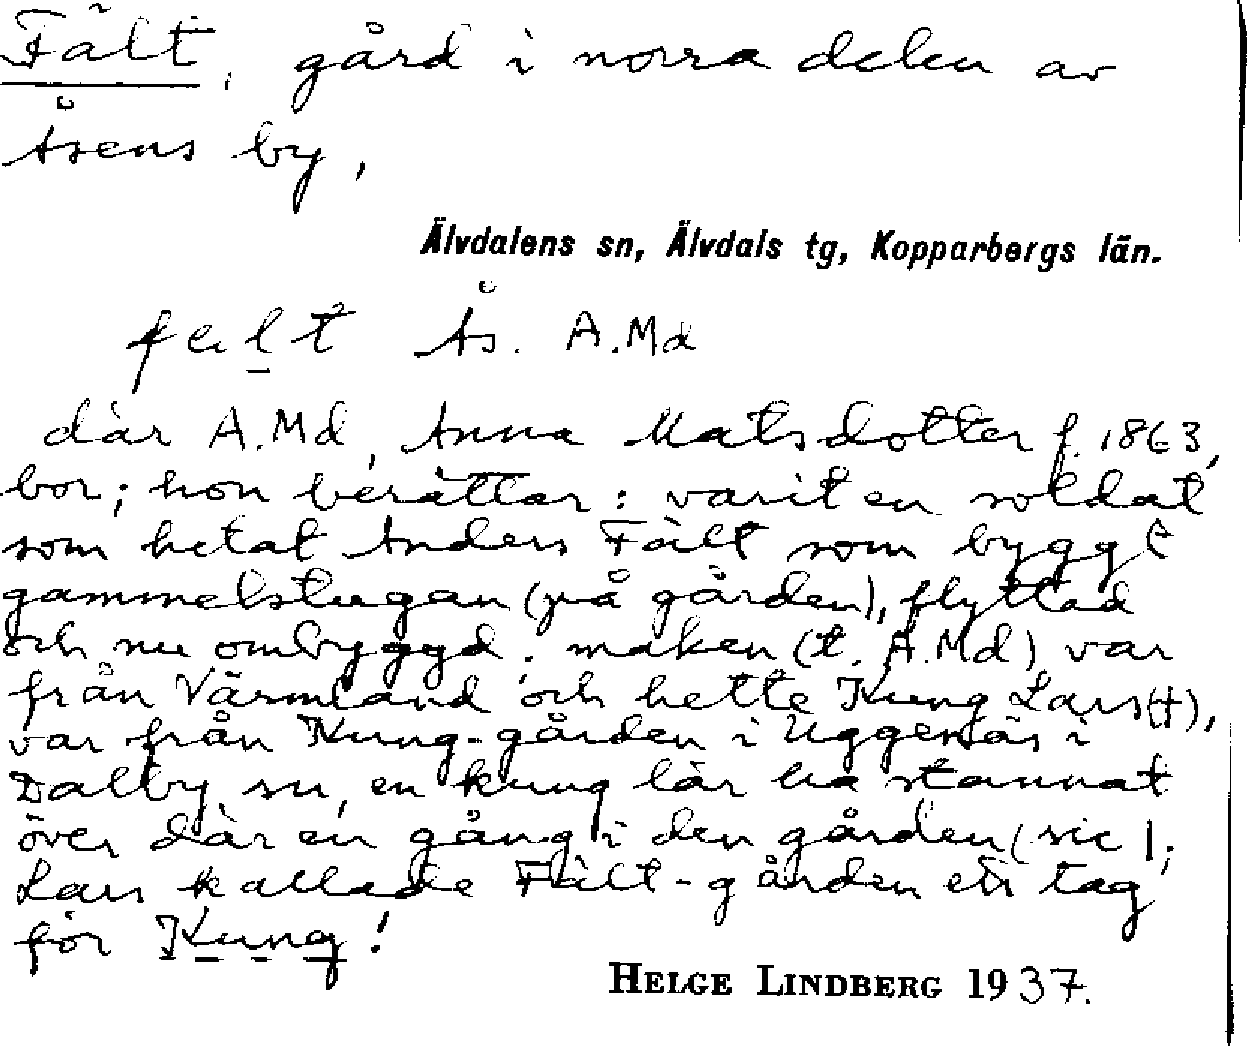 Fält, gård i norra delen av
Åsens by,
Älvdalens sn, Älvdals tg, Kopparbergs län.
falt Ås. A.Md
där A.Md, Anna Matsdotter f. 1863,
bor; hon berättar: varit en soldat
som hetat Anders Fält som byggt
gammelstugan (på gården), flyttad
och nu ombyggd; maken (t. A.Md) var
från Värmland och hette Kung Lars (†),
var från Kung-gården i Uggenäs i
Dalby sn, en kung lär ha stannat
över där en gång i den gården (sic);
Lars kallade Fält-gården ett tag
för Kung!
HELGE LINDBERG 1937.